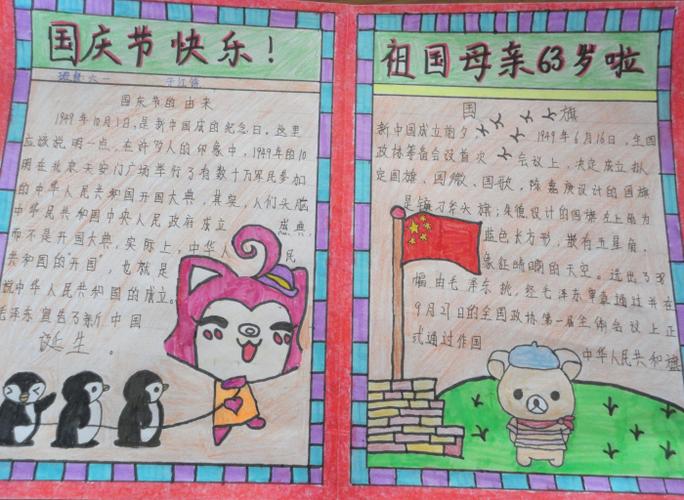 国庆节快乐！
班级：六一
国庆节的由来
1949年10月1日，是新中国成的纪念日。这里
应该说明一点，在许多人的印象中，1949年的10
明在北京天安门广场举行了有数十万军民参加
的中华人民共和国开国大典，其实，人们头脑
中华民共和国中央人民政府成立 盛典，
而不是开国大典，实际上，中华人 民
共和国的开国，也就是
说中华人民共和国的成立。
毛泽东宣告了新中国
诞生。
祖国母亲63岁啦
国 旗
新中国成立前夕 1949年6月16日，全国
政协筹备会议首次 会议上，决定成立拟
定国旗，国徽、国歌，陈嘉庚设计的国旗
是镰刀斧头旗；朱德设计的国旗左上角为
蓝色长方形，嵌有五星角，
象征晴朗的天空。选出了38
幅由毛泽东挑，经毛泽东审查通过并在
9月21日的全国政协第一届全体会议上正
式通过作国
中华人民共和国